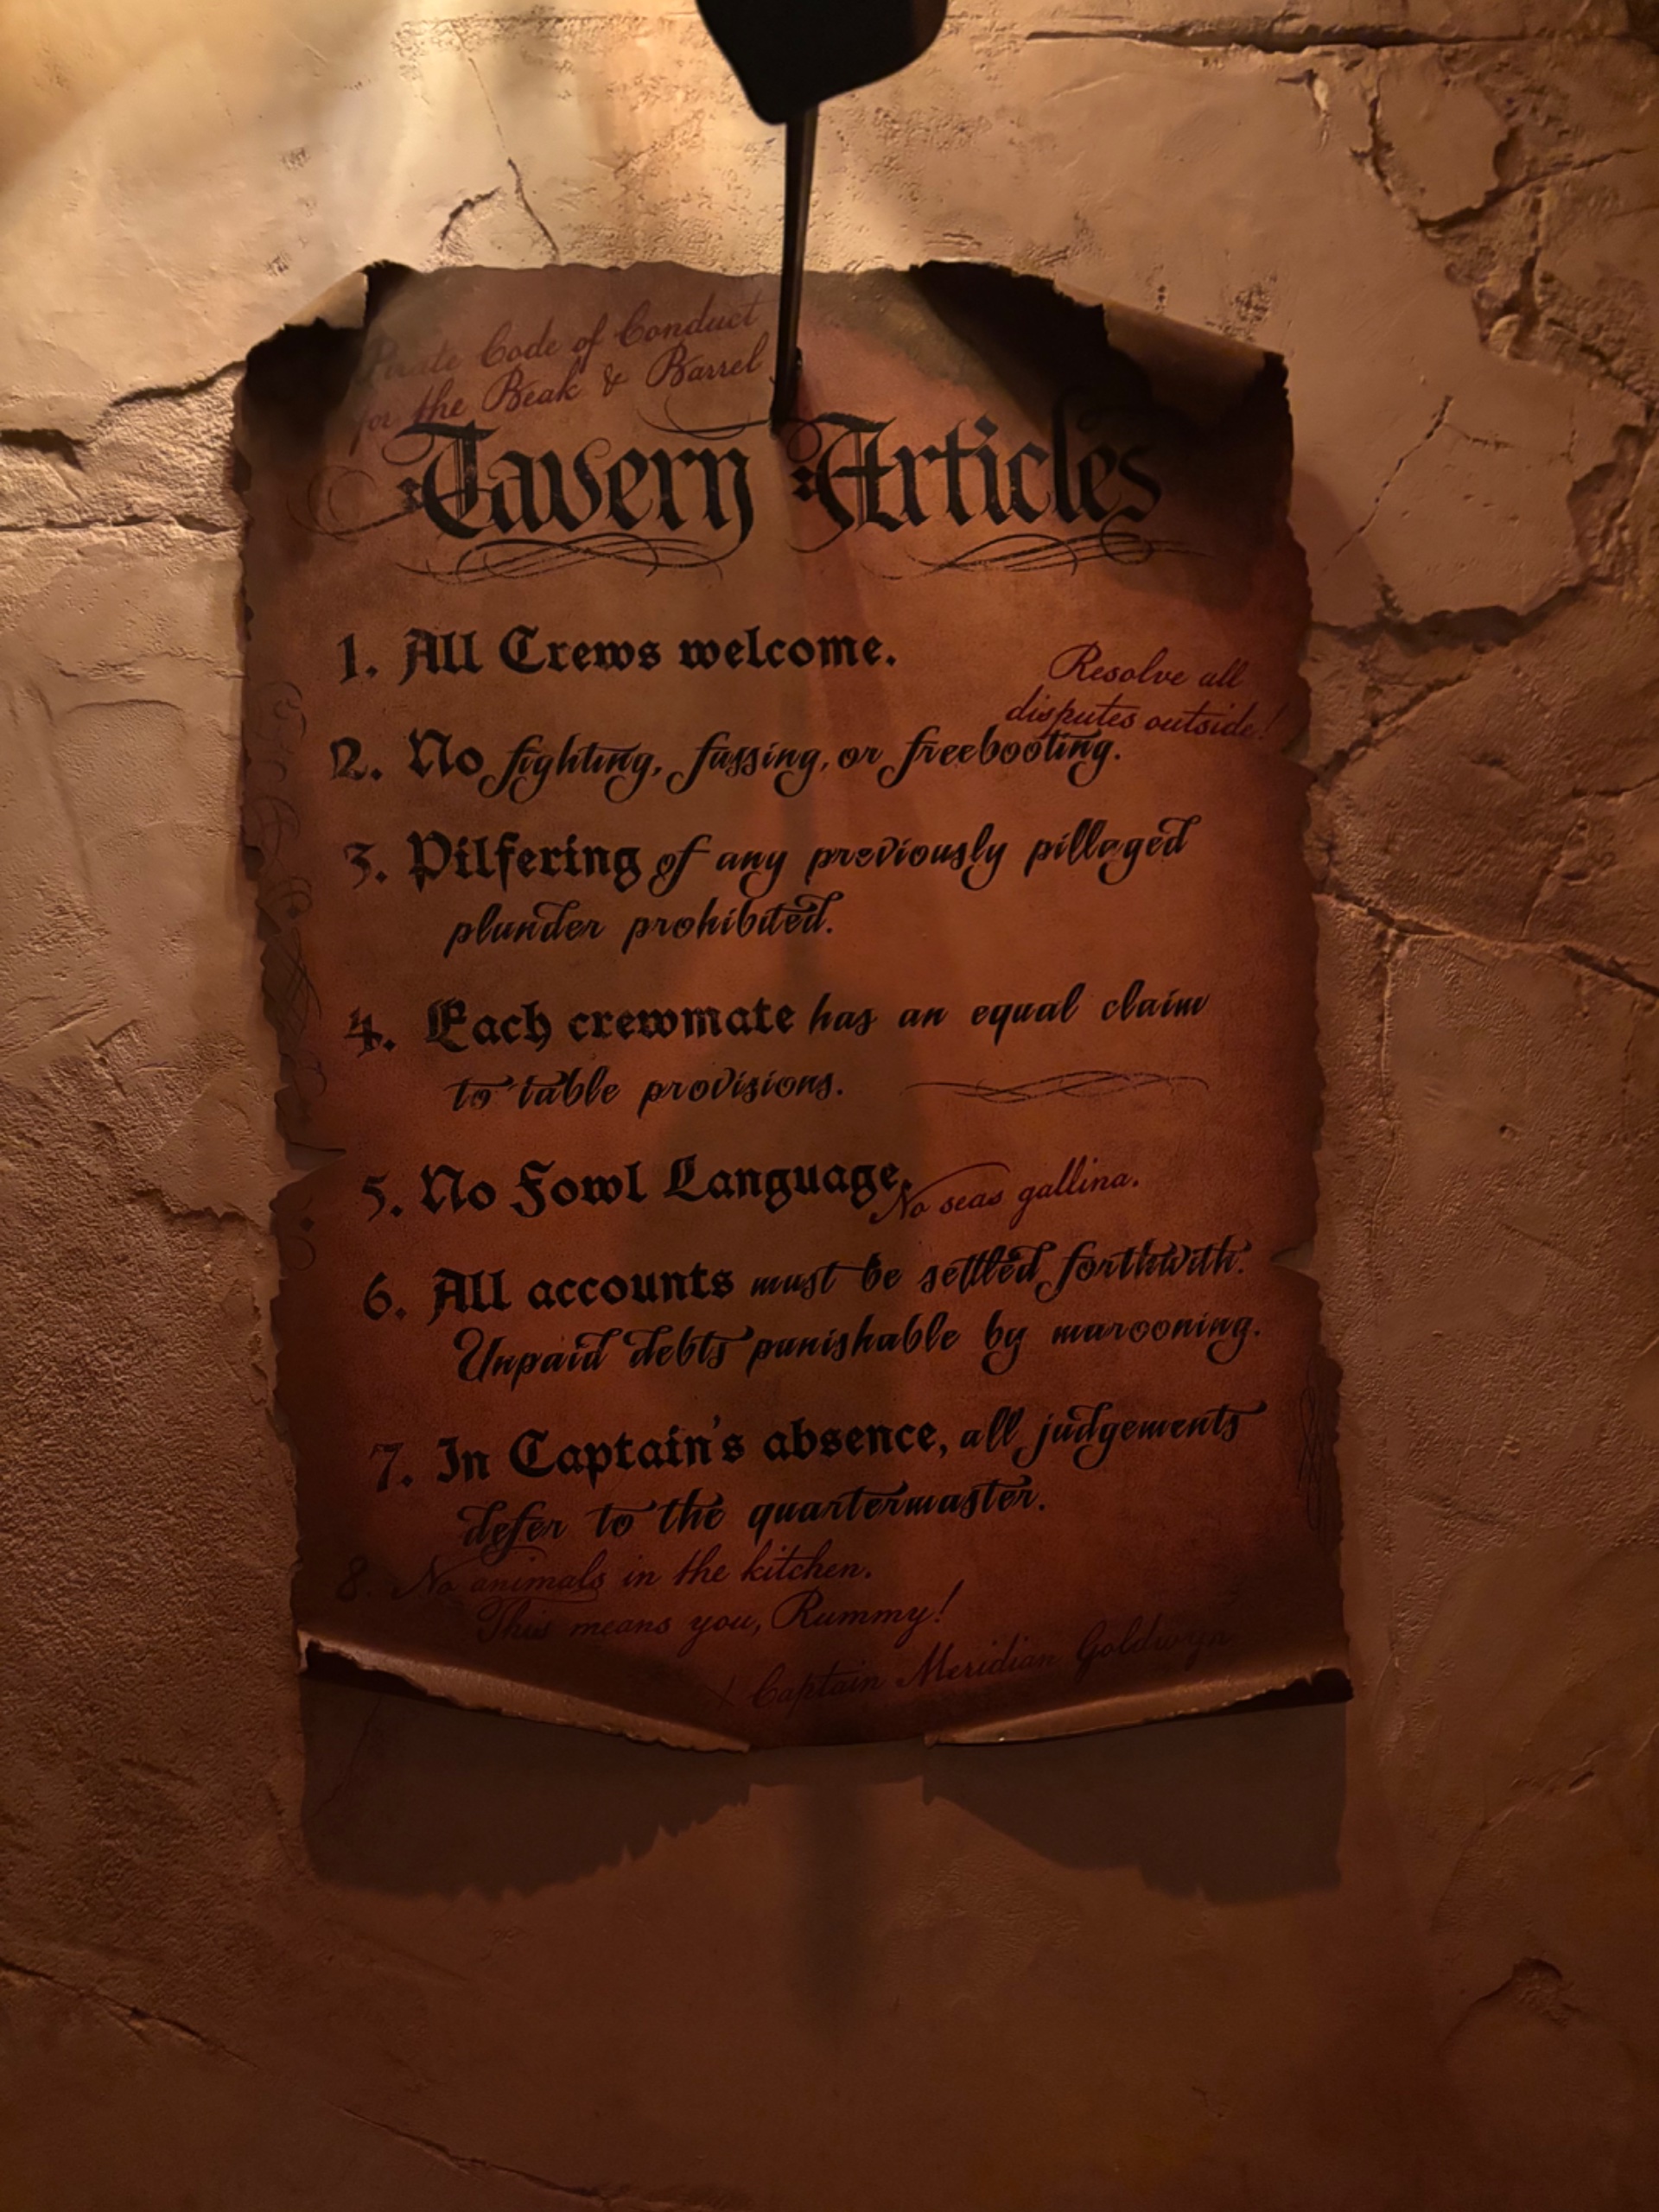 Pirate Code of Conduct
for the Beak & Barrel
Tavern Articles
1. All Crews welcome.
Resolve all
disputes outside!
2. No fighting, fussing, or freebooting.
3. Pilfering of any previously pillaged
plunder prohibited.
4. Each crewmate has an equal claim
to table provisions.
5. No Fowl Language.
No seas gallina.
6. All accounts must be settled forthwith.
Unpaid debts punishable by marooning.
7. In Captain's absence, all judgements
defer to the quartermaster.
8. No animals in the kitchen.
This means you, Rummy!
X Captain Meridian Goldwyn